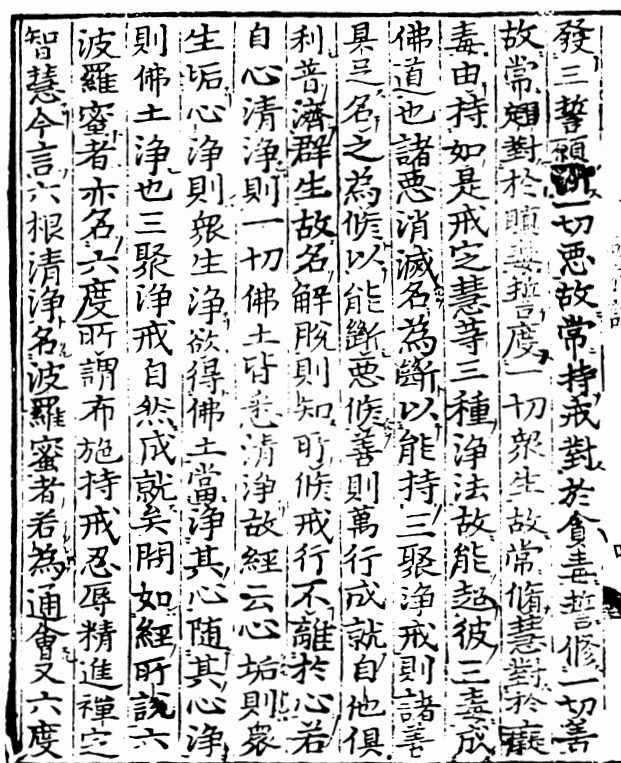 發三誓願断一切悪故常持戒對於貪毒誓修一切善
故常習對於瞋毒誓度一切衆生故常脩慧對於癡
毒由持如是戒定慧等三種淨法故能超彼三毒成
佛道也諸悪消滅名為斷以能持三聚淨戒則諸善
具足名之為脩以能斷悪脩善則萬行成就自他俱
利普濟群生故名解脫則知所脩戒行不離於心若
自心清淨則一切佛土皆悉清淨故經云心垢則衆
生垢心淨則衆生淨欲得佛土當淨其心随其心淨
則佛土淨也三聚淨戒自然成就矣問如經所說六
波羅蜜者亦名六度所謂布施持戒忍辱精進禪定
智慧今言六根清淨名波羅蜜者若為通會又六度